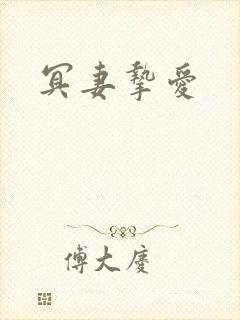 冥妻摯愛
傅大慶